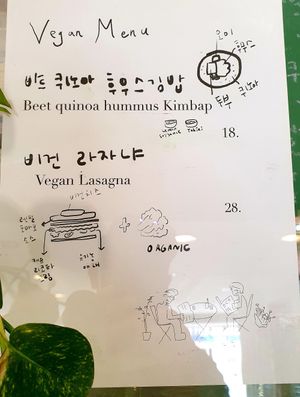 Vegan Menu
오이
후무스
비트 퀴노아 후무스김밥
두부
퀴노아
Beet quinoa hummus Kimbap
18.
비건 라자냐
Vegan Lasagna
비건치즈
28.
소스
+
ORGANIC